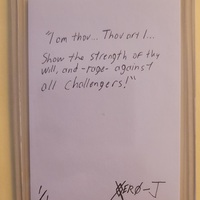 "I am thou... Thou art I...
Show the strength of thy
will, and -rage- against
all challengers!"
1/1 XERO-J